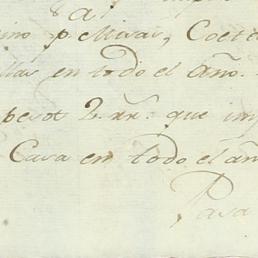 8a
ino p.a Missas, Coet
llas en todo el Año.
pesos 2 rr.s que im
Casa en todo el añ
Pasa